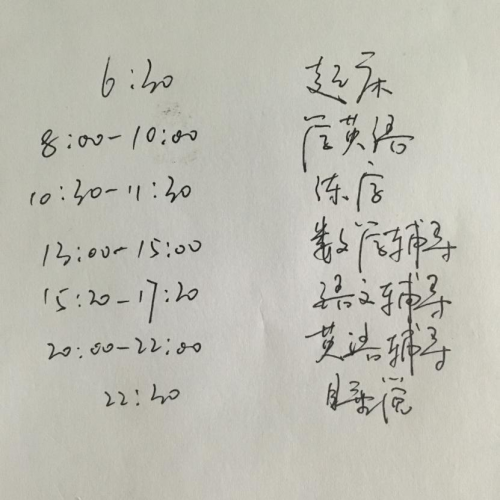 6:30 起床
8:00-10:00 学英语
10:30-11:30 练字
13:00-15:00 数学辅导
15:20-17:20 语文辅导
20:00-22:00 英语辅导
22:30 睡觉